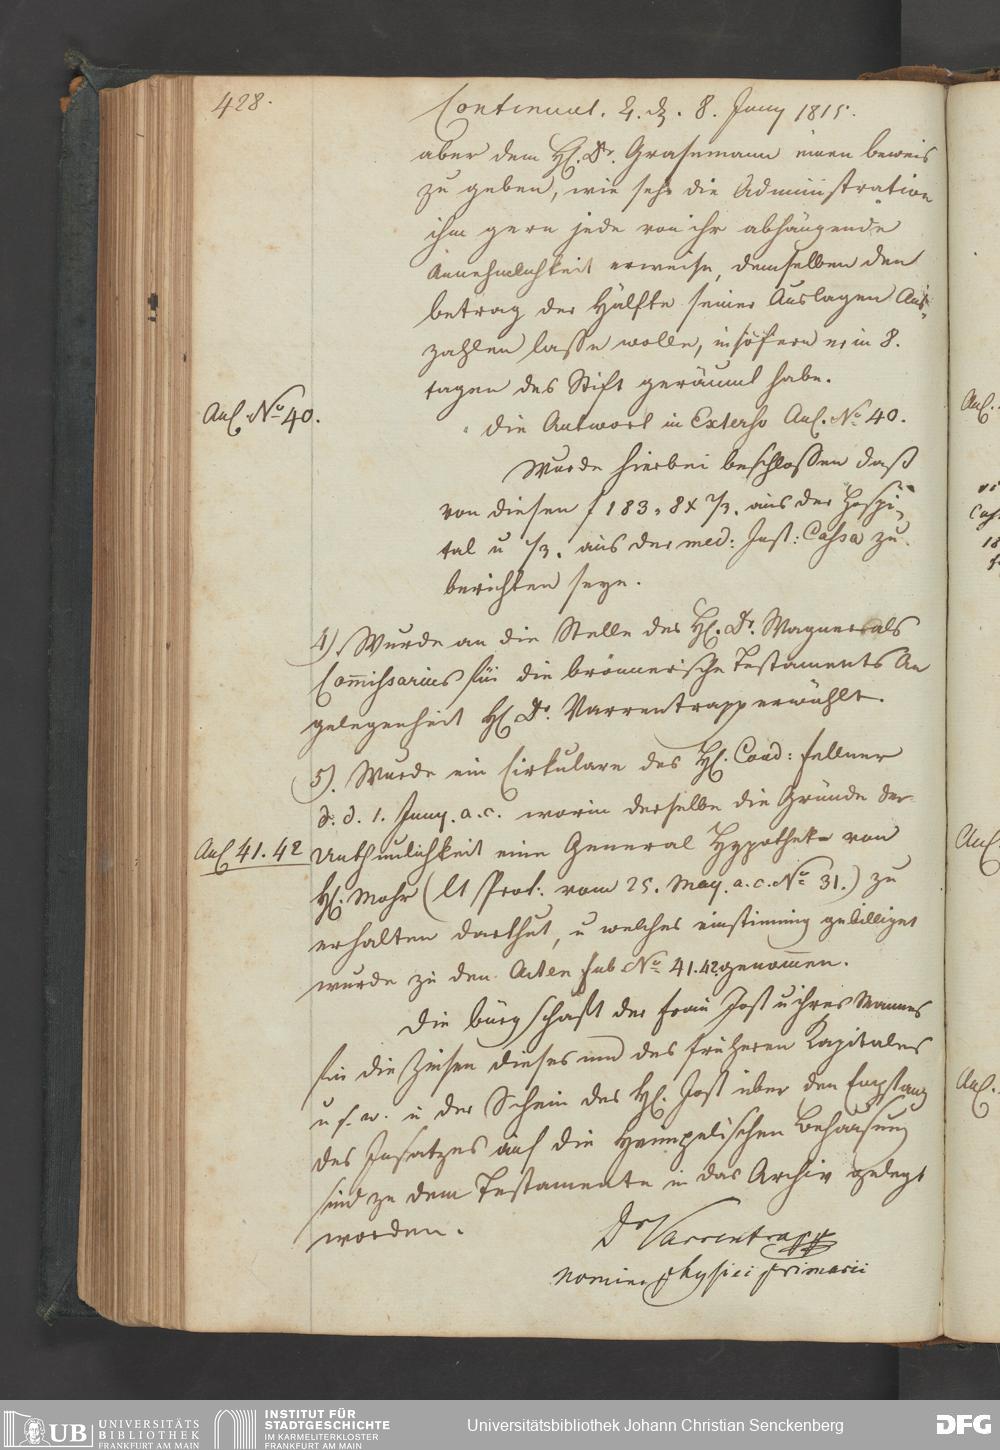 428.
Continuat. d. 8. Juny 1815.
aber dem H. Dr. Grasemann einen beweis
zu geben, wie sehr die Administration
ihm gern jede von ihr abhängende
Annehmlichkeit erweise, demselben den
betrag der Hälfte seiner Auslagen Aus-
zahlen lasse wolle, insofern er in 8.
tagen das Stift geräumt habe.
Anl. No 40.
die Antwort in Extenso Anl. No 40.
Wurde hierbei beschlossen daß
von diesen f 183, 8 x 2/3. aus der Hospi-
tal u 1/3. aus der med: Inst: Cassa zu
berichten seye.
4). Wurde an die Stelle des H. Dr. Wagner als
Commissarius für die brönnerische Testaments An
gelegenheit H. Dr. Varrentrapp erwählt.
5). Wurde ein Cirkulare des H. Cand: Fellner
d. d. 1. Juny. a. c. worin derselbe die Gründe der
Anl 41. 42
Unthunlichkeit eine General Hypothek von
H. Mohr (lt Prot: vom 25. May. a. c. No 31.) zu
erhalten darthut, u welches einstimmig gebilliget
wurde zu den Acten sub No 41. 42 genommen.
Die bürgschaft der Frau Jost u ihres Mannes
für die Zinsen dieses und des früheren Kapitales
u s. w. u der Schein des H. Jost über den Empfang
des Insatzes auf die Behausung
sind zu dem Testamente in das Archiv gelegt
worden.
Dr Varrentrapp
nomine physici primarii
Anl.
Anl.
Anl.
UB UNIVERSITÄTS
BIBLIOTHEK
FRANKFURT AM MAIN
INSTITUT FÜR
STADTGESCHICHTE
IM KARMELITERKLOSTER
FRANKFURT AM MAIN
Universitätsbibliothek Johann Christian Senckenberg
DFG